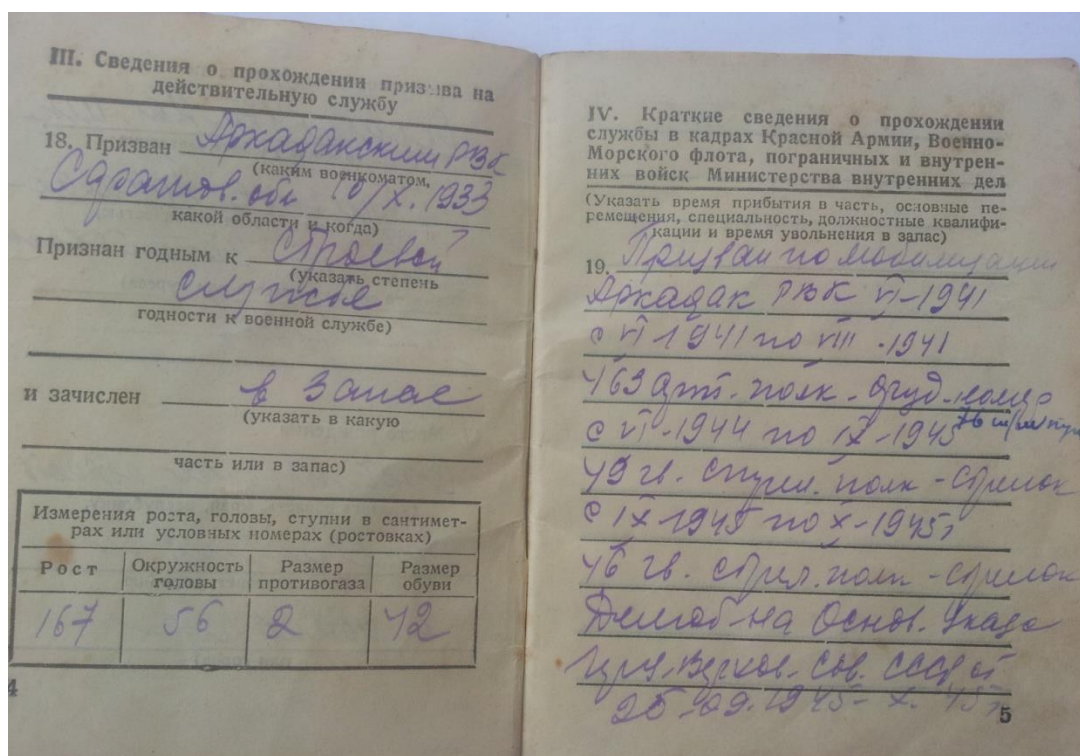 III. Сведения о прохождении призыва на
действительную службу
18. Призван Аркадакским РВК
(каким военкоматом,
Саратов. обл 10/X. 1933
какой области и когда)
Признан годным к строевой
(указать степень
службе
годности к военной службе)
и зачислен в запас
(указать в какую
часть или в запас)
Измерения роста, головы, ступни в сантимет-
рах или условных номерах (ростовках)
Рост Окружность головы Размер противогаза Размер обуви
167 56 2 42
4
IV. Краткие сведения о прохождении
службы в кадрах Красной Армии, Военно-
Морского флота, пограничных и внутрен-
них войск Министерства внутренних дел
(Указать время прибытия в часть, основные пе-
ремещения, специальность, должностные квалифи-
кации и время увольнения в запас)
19. Призван по мобилизации
Аркадак РВК VI-1941
с VI 1941 по VIII-1941
463 арт. полк - оруд. номер
76 м/м пуш
с VI-1944 по IX-1945
49 гв. стрел. полк - стрелок
с IX-1945 по X-1945
46 гв. стрел. полк - стрелок
Демоб на Основ. Указа
През. Верхов. Сов. СССР от
25-09.1945- X. 45
5